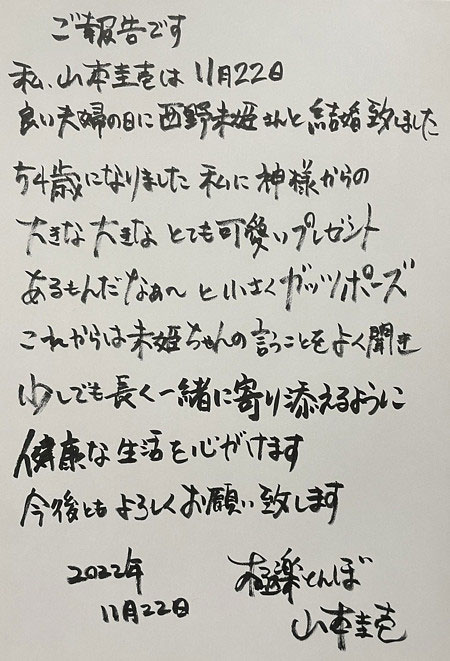 ご報告です
私、山本圭壱は11月22日
良い夫婦の日に西野未姫さんと結婚致しました
54歳になりました私に神様からの
大きな大きなとても可愛いプレゼント
あるもんだなぁ〜と小さくガッツポーズ
これからは未姫ちゃんの言うことをよく聞き
少しでも長く一緒に寄り添えるように
健康な生活を心がけます
今後ともよろしくお願い致します
2022年
11月22日
極楽とんぼ
山本圭壱